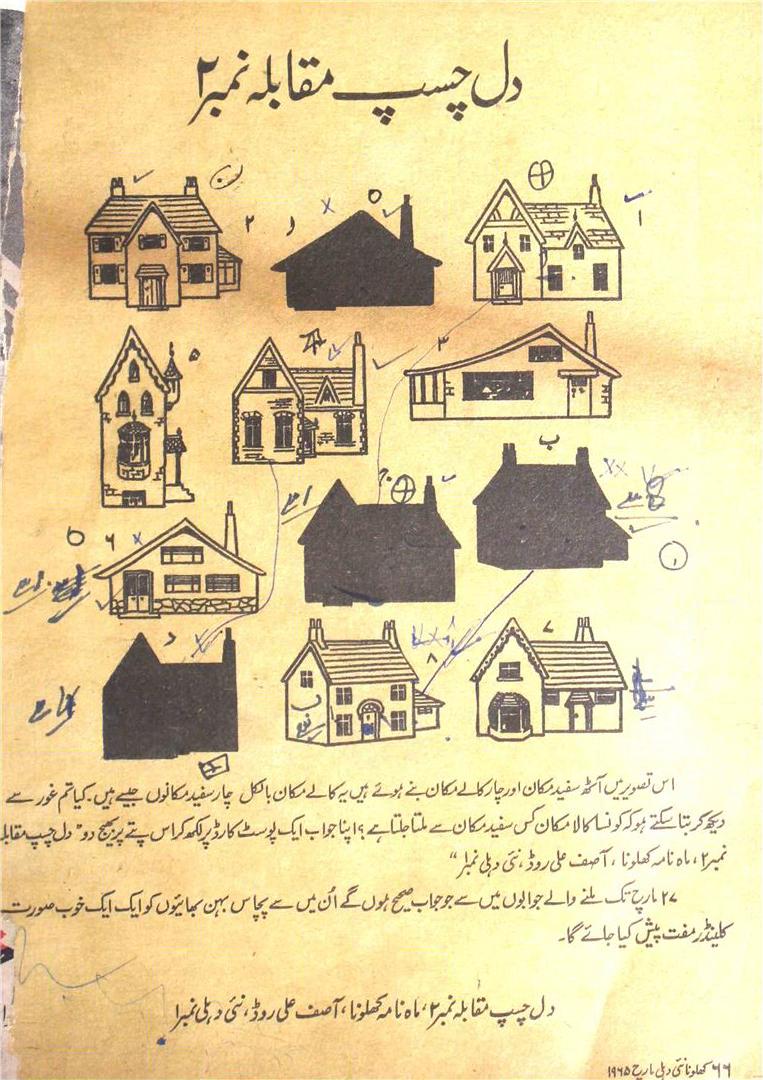 دل چسپ مقابلہ نمبر ۲
۱
۲
۳
۵
ب
ج
۶
د
۸
۷
اس تصویر میں آٹھ سفید مکان اور چار کالے مکان بنے ہوئے ہیں یہ کالے مکان بالکل چار سفید مکانوں جیسے ہیں۔ کیا تم غور سے
دیکھ کر بتا سکتے ہو کہ کونسا کالا مکان کس سفید مکان سے ملتا جلتا ہے؟ اپنا جواب ایک پوسٹ کارڈ پر لکھ کر اس پتے پر بھیج دو "دل چسپ مقابلہ
نمبر ۲، ماہ نامہ کھلونا، آصف علی روڈ، نئی دہلی نمبر۱"
۲۷ مارچ تک ملنے والے جوابوں میں سے جو جواب صحیح ہوں گے اُن میں سے پچاس بہن بھائیوں کو ایک ایک خوب صورت
کلینڈر مفت پیش کیا جائے گا۔
دل چسپ مقابلہ نمبر ۲، ماہ نامہ کھلونا، آصف علی روڈ، نئی دہلی نمبر ۱
۶۶ کھلونا نئی دہلی مارچ ۱۹۶۵